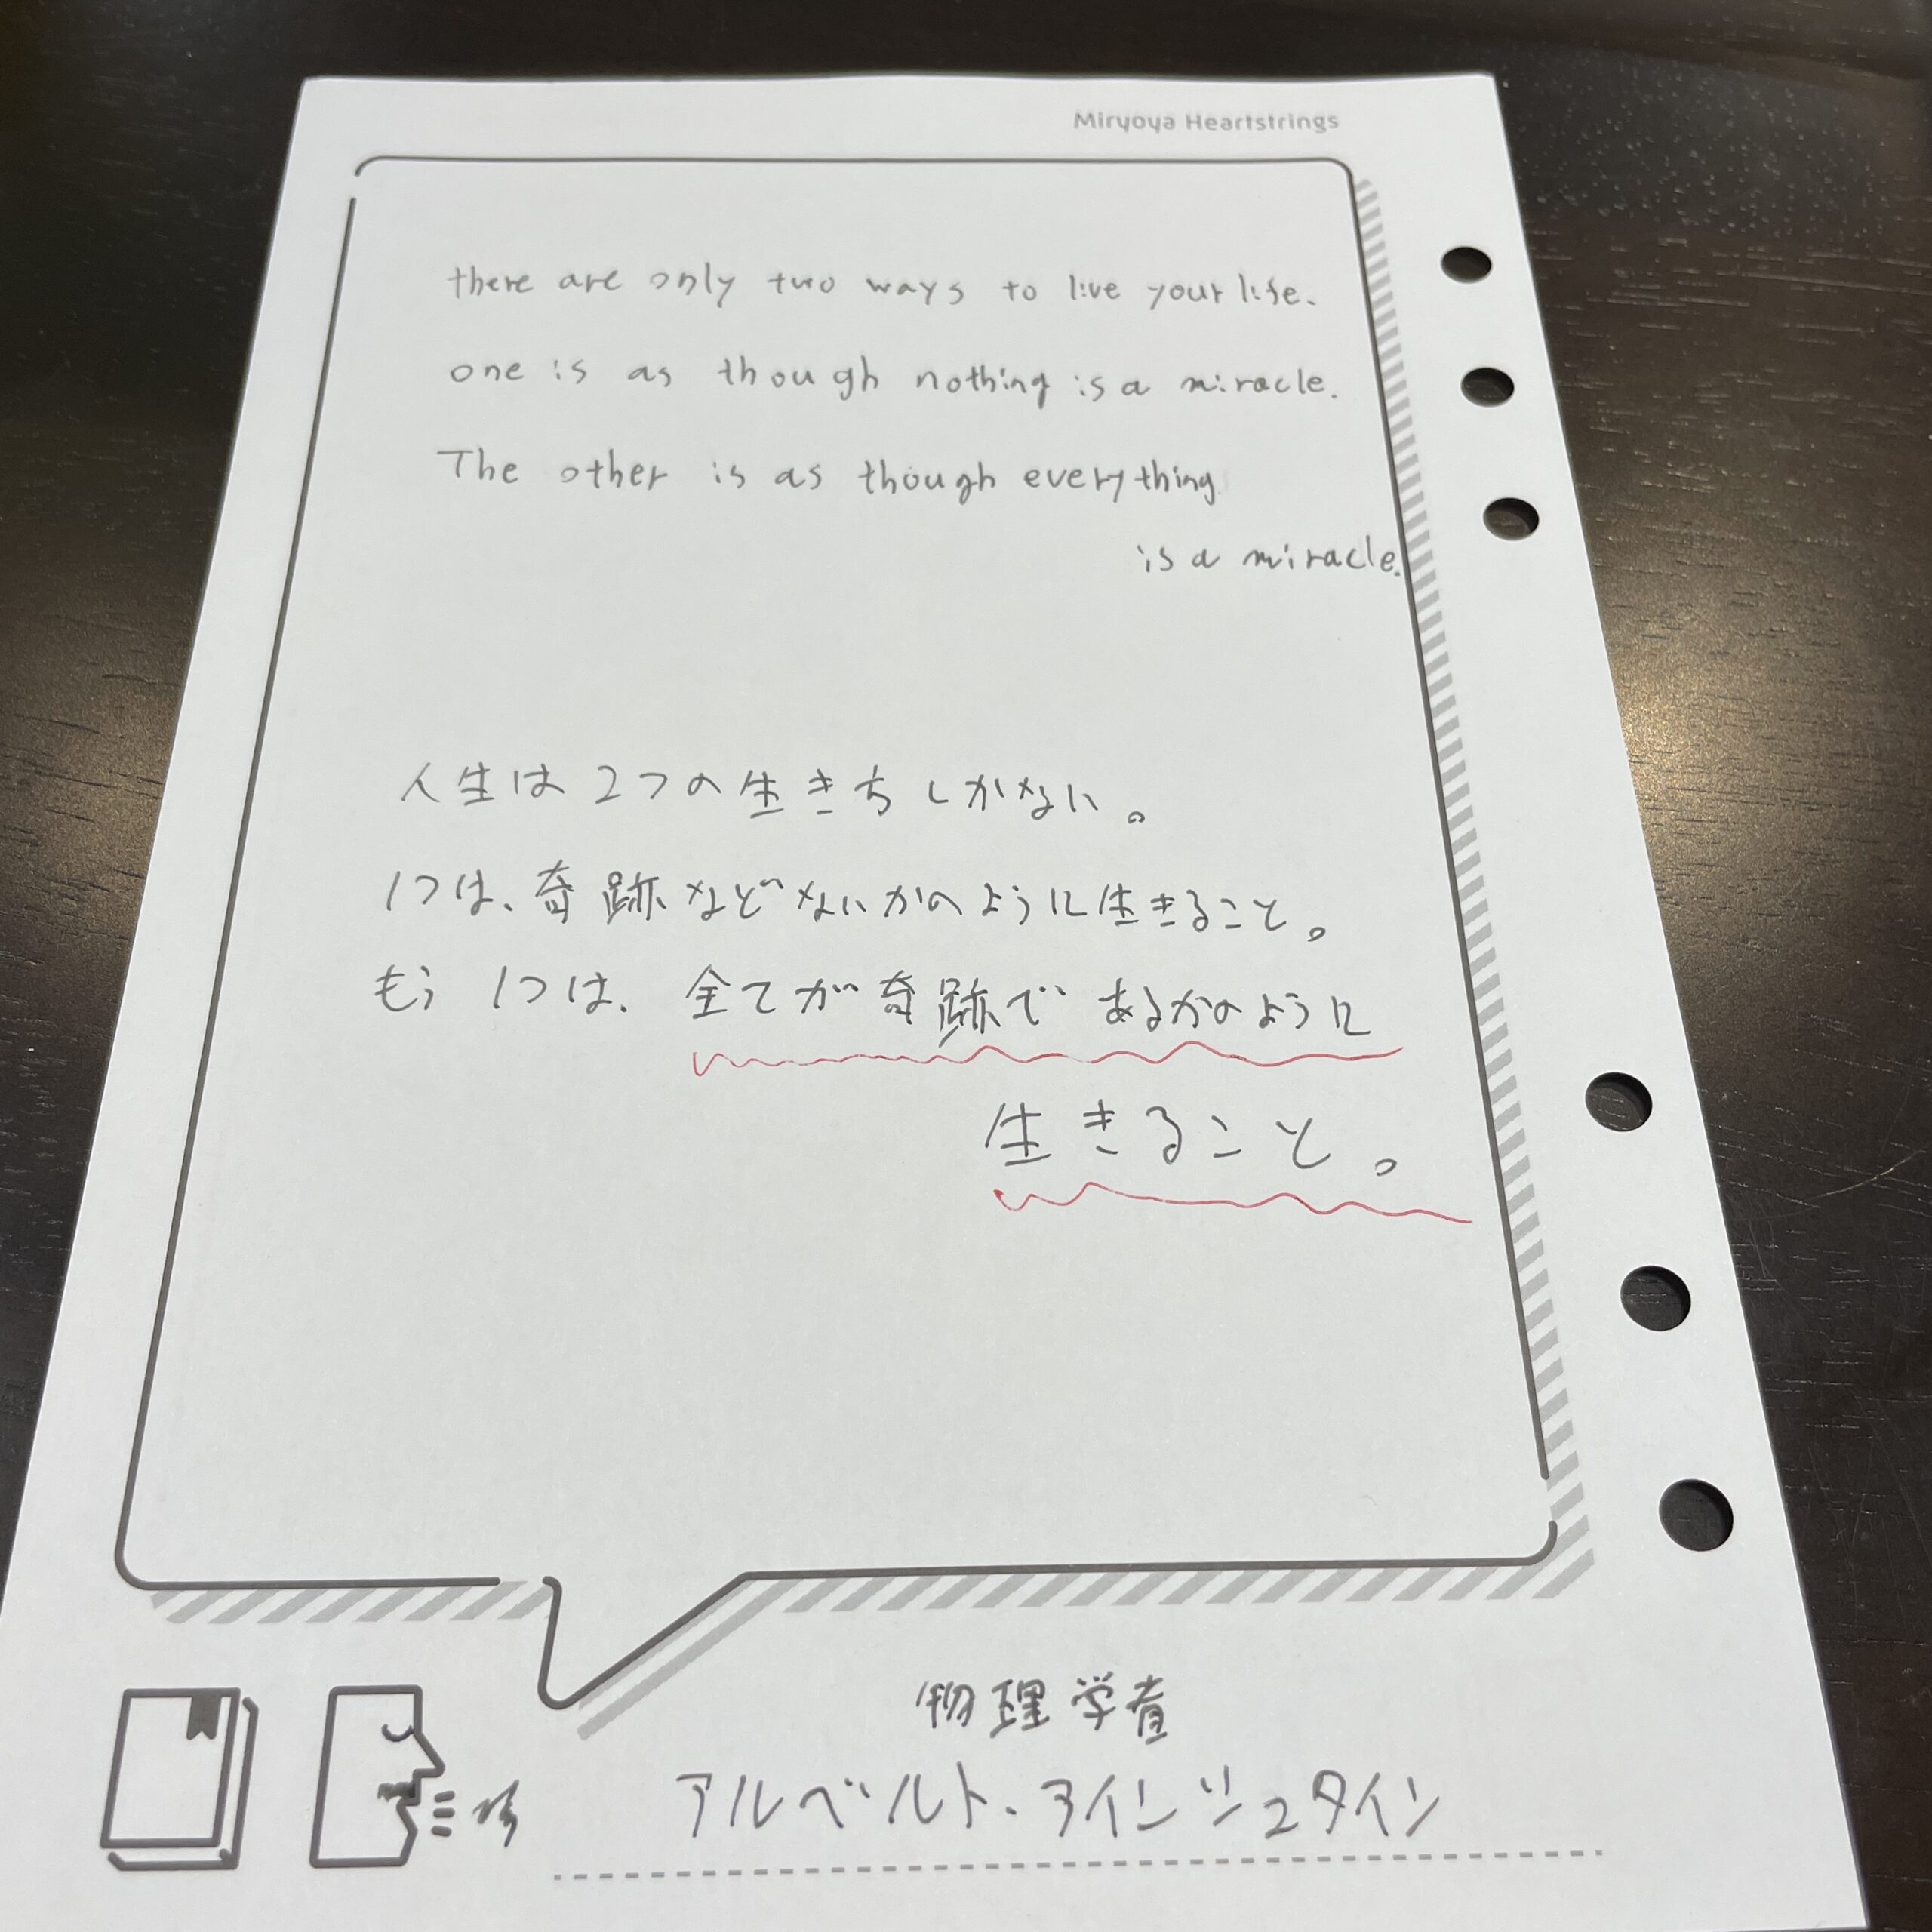 Miryoya Heartstrings
there are only two ways to live your life.
one is as though nothing is a miracle.
The other is as though everything
is a miracle.
人生は2つの生き方しかない。
1つは、奇跡などないかのように生きること。
もう1つは、全てが奇跡であるかのように
生きること。
物理学者
アルベルト・アインシュタイン